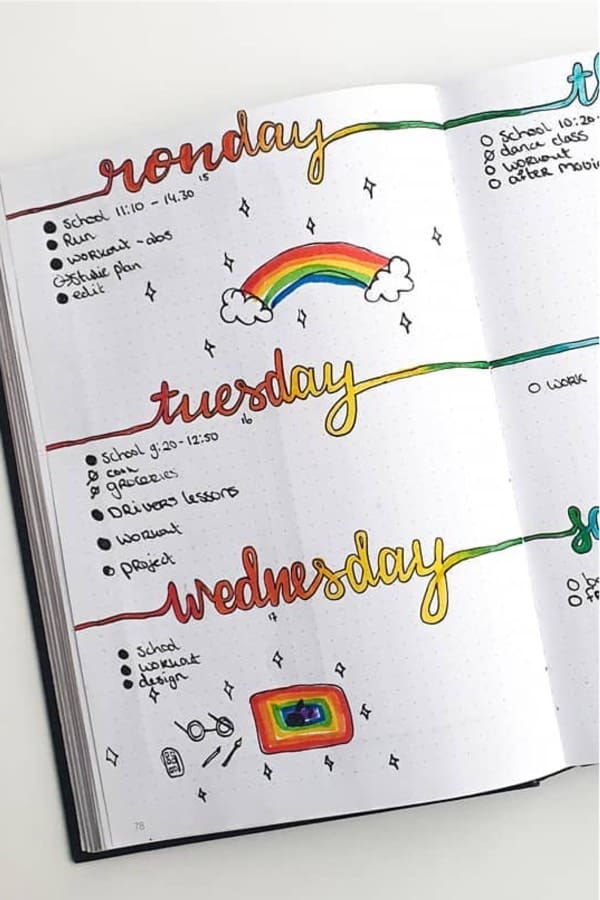 monday
15
school 11:10 - 14.30
Run
workout - abs
Studie plan
edit
tuesday
16
school 9:20 - 12:50
cook
groceries
Drivers lessons
workout
project
wednesday
17
school
workout
design
78
th
school 10:20-
dance class
workout
after movie
work
sa